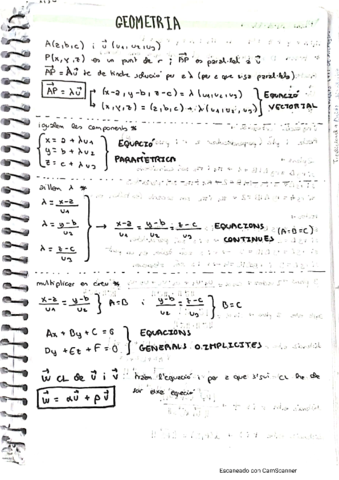 GEOMETRIA
A(a,b,c) i u⃗ (u1,u2,u3)
P(x,y,z) es un punt de r i AP⃗ es paral·lel a u⃗
AP⃗ = λu⃗ te de tindre solució per a λ (per a que siga paral·lela)
AP⃗ = λu⃗
(x-a, y-b, z-c) = λ (u1,u2,u3)
(x,y,z) = (a,b,c) + λ(u1,u2,u3)
EQUACIÓ VECTORIAL
igualem les components
x = a + λu1
y = b + λu2
z = c + λu3
EQUACIÓ PARAMÈTRICA
aïllem λ
λ = x-a / u1
λ = y-b / u2
λ = z-c / u3
→ x-a / u1 = y-b / u2 = z-c / u3
EQUACIONS CONTINUES
(A=B=C)
multiplicar en creu
x-a / u1 = y-b / u2 } A=B i y-b / u2 = z-c / u3 } B=C
Ax + By + C = 0
Dy + Ez + F = 0
EQUACIONS GENERALS O IMPLÍCITES
w⃗ CL de u⃗ i v⃗ l'equació i per a que siga CL
w⃗ = αu⃗ + βv⃗
Escaneado con CamScanner